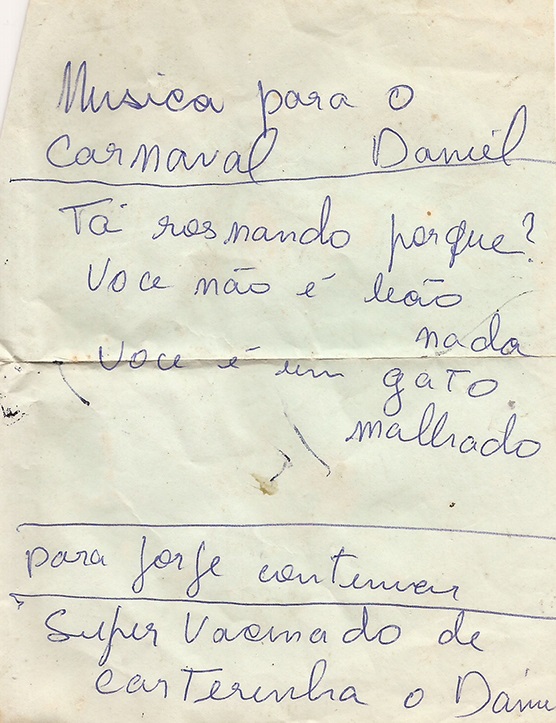 Musica para o
Carnaval Daniel
Tá rosnando porque?
Voce não é leão
nada
Voce é um gato
malhado
para Jorge continuar
Super Vacinado de
carterinha o Danie